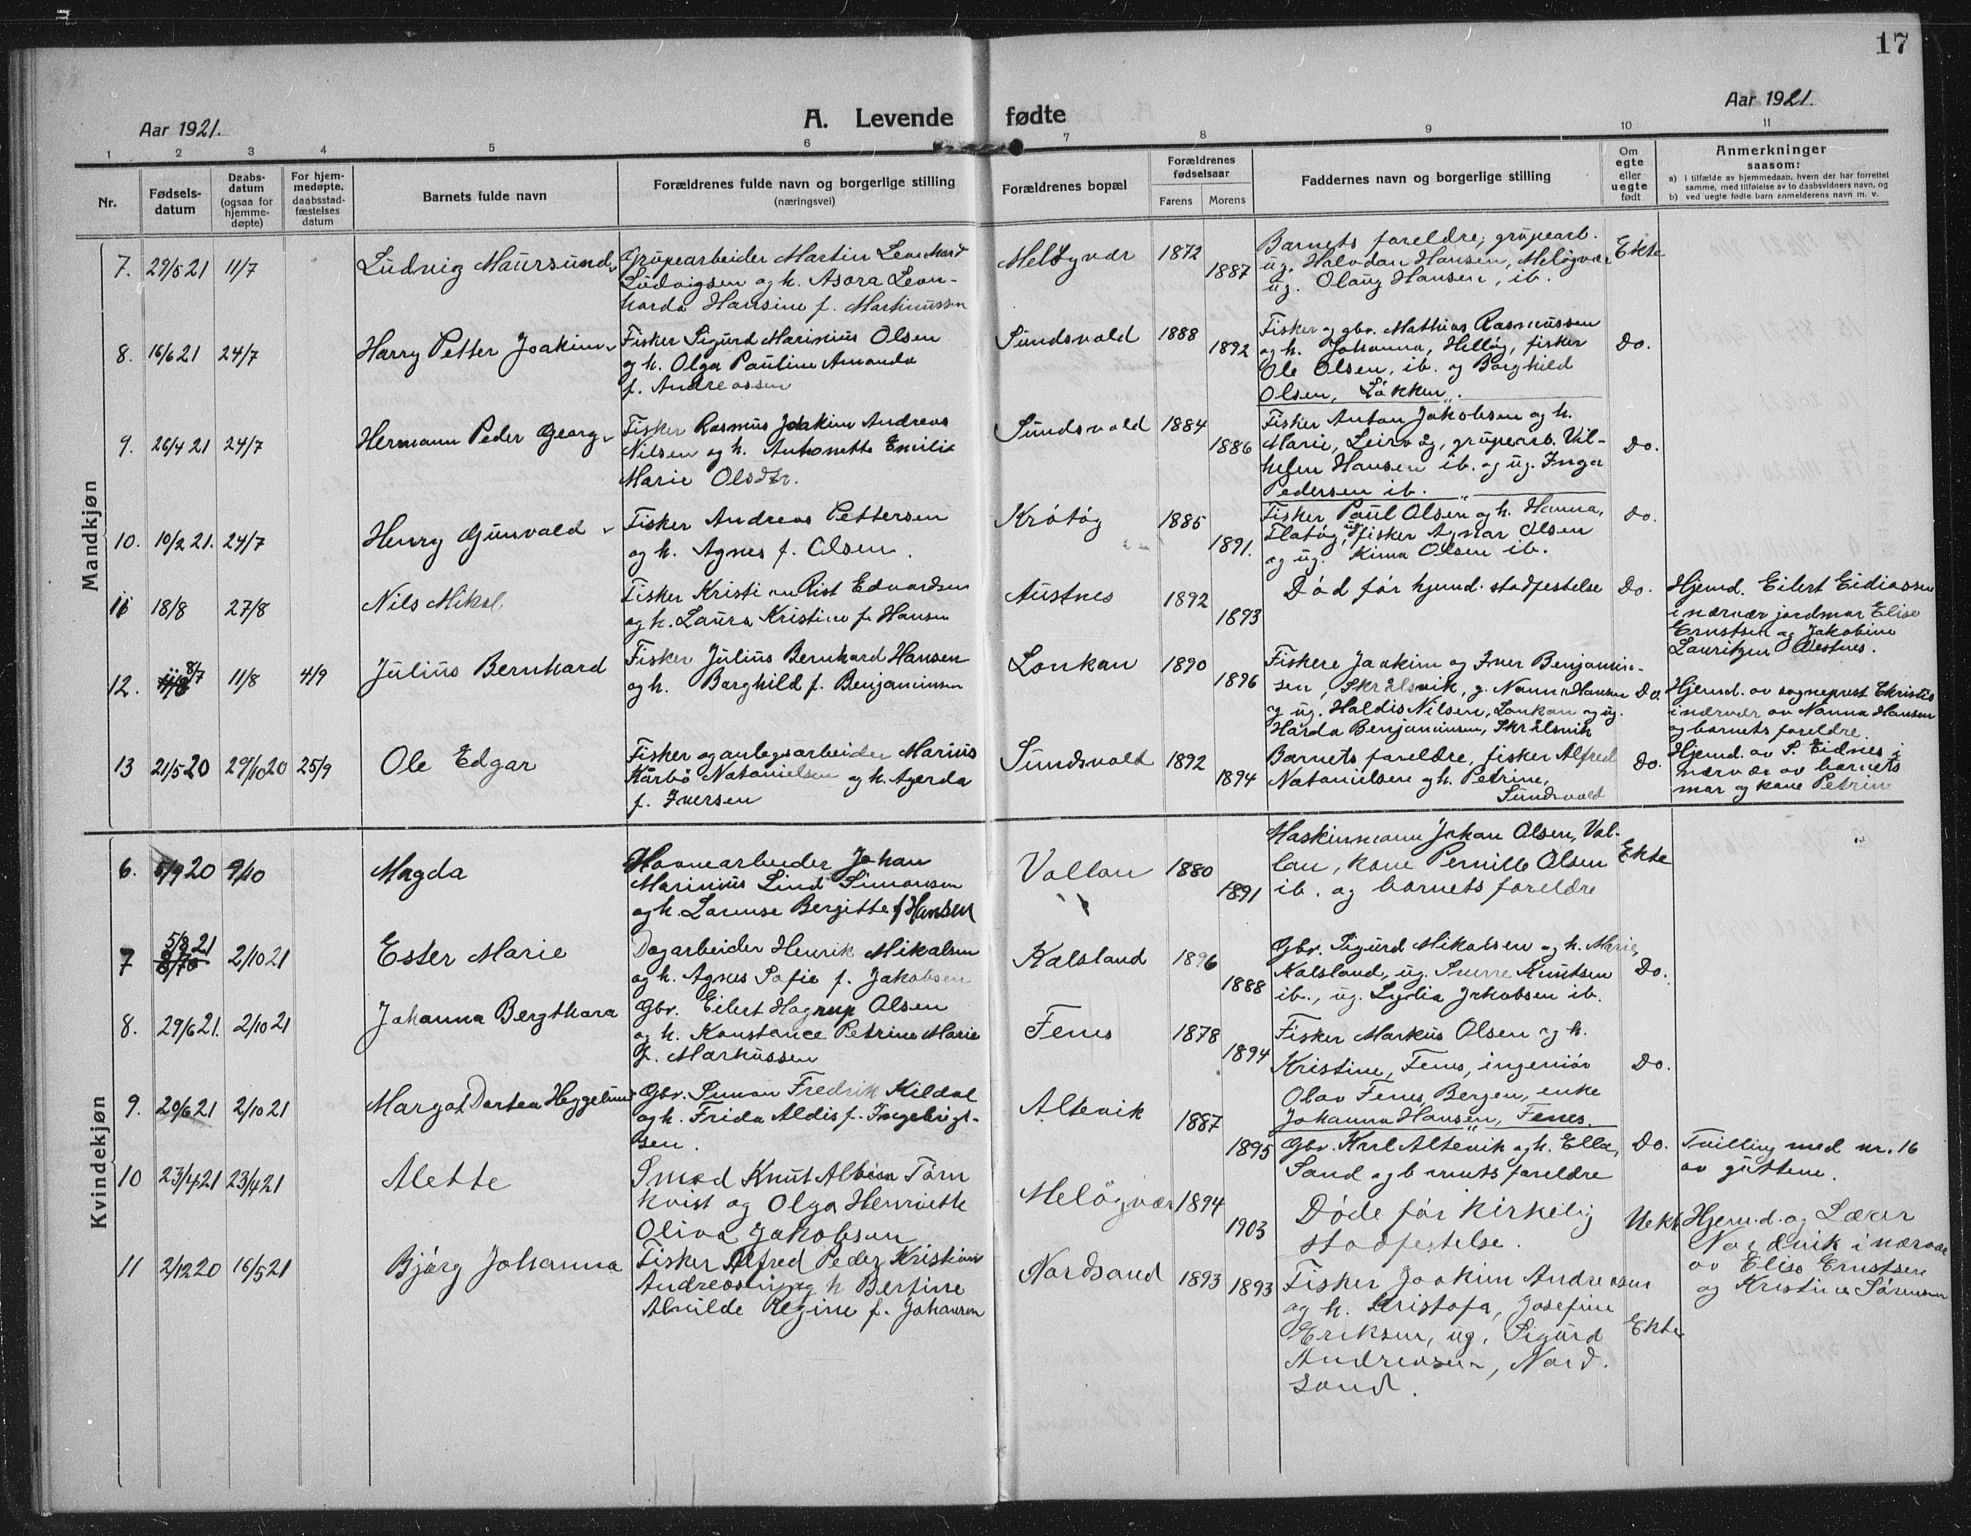 17
Aar 1921.
A. Levende fødte
Aar 1921.
1 2 3 4 5 6 7 8 9 10 11
Nr.
Fødsels-
datum
Daabs-
datum
(ogsaa for
hjemme-
døpte)
For hjem-
medøpte,
daabsstad-
fæstelses
datum
Barnets fulde navn
Forældrenes fulde navn og borgerlige stilling
(næringsvei)
Forældrenes bopæl
Forældrenes
fødselsaar
Farens Morens
Faddernes navn og borgerlige stilling
Om
egte
eller
uegte
født
Anmerkninger
saasom:
a) i tilfælde av hjemmedaab, hvem der har forrettet
samme, med tilføielse av to daabsvidners navn, og
b) ved uegte fødte barn anmelderens navn m. v.
Mandkjøn
7. 29/5 21 11/7
Ludvig Maursund
Grubearbeider Martin Leonhard
Ludvigsen og h. Asora Leon-
harda Hansine f. Martinussen
Meløyvær 1872 1887
Barnets foreldre, grubearb.
ug. Halvdan Hansen, Meløyvær
ug. Olaug Hansen, ib.
Ekte
8. 16/6 21 24/7
Harry Petter Joakim
Fisker Sigurd Marinius Olsen
og h. Olga Pauline Amanda
f. Andreassen
Sundsvold 1888 1892
Fisker og gbr. Mathias Rasmussen
og h. Johanna, Helløy, fisker
Ole Olsen, ib. og Borghild
Olsen, Løkken.
Do.
9. 26/4 21 24/7
Hermann Peder Georg
Fisker Rasmus Joakim Andreas
Nilsen og h. Antonette Emilie
Marie Olsdtr.
Sundsvold 1884 1886
Fisker Anton Jakobsen og h.
Marie, Leirvåg, grubearb. Vil-
helm Hansen ib. og ug. Inga
Pedersen ib.
Do.
10. 10/2 21. 24/7
Henry Gunvald
Fisker Andreas Pettersen
og h. Agnes f. Olsen.
Krøtøy 1885 1891.
Fisker Paul Olsen og h. Hanna,
Flatøy, ug. fisker Agnar Olsen
og ug. Kima Olsen ib.
Do.
11 18/8 27/8
Nils Mikal
Fisker Kristian Rist Edvardsen
og h. Laura Kristine f. Hansen
Austnes 1892 1893
Død før hjemd. stadfestelse
Do.
Hjemd. Eilert Eidiassen
i nærvær jordmor Elise
Ernstsen og Jakobine
Lauritzen Vestnes.
12. 8/7 11/8 4/9
Julius Bernhard
Fisker Julius Bernhard Hansen
og h. Borghild f. Benjaminsen
Lonkan 1890 1896
Fiskere Joakim og Iver Benjamin-
sen, Skrålsvik, g. Nanna Hansen
og ug. Haldis Nilsen, Lonkan og ug.
Harda Benjaminsen, Skrålsvik
Do.
Hjemd. av sogneprest Christie
i nærvær av Nanna Hansen
og barnets foreldre.
13 21/5 20 29/10 20 25/9
Ole Edgar
Fisker og anlegsarbeider Marius
Kårbø Natanielsen og h. Agerda
f. Iversen
Sundsvold 1892 1894
Barnets foreldre, fisker Alfred
Natanielsen og h. Petrine,
Sundsvold
Do.
Hjemd. av S. Eidnes i
nærvær av barnets
mor og kone Petrin
Kvindekjøn
6. 5/9 20 9/10
Magda
Havnearbeider Johan
Marinius Lind Simonsen
og h. Lorense Bergitte f Hansen
Vollan 1880 1891
Maskinmann Johan Olsen, Vol-
lan, kone Pernille Olsen
ib. og barnets foreldre
Ekte
7 5/8 21 2/10 21
Ester Marie
Dagarbeider Henrik Mikalsen
og h. Agnes Sofie f. Jakobsen
Kalsland 1896 1888
Gbr. Sigurd Mikalsen og h. Marie,
Kalsland, ug. Snorre Knutsen
ib., ug. Lydia Jakobsen ib.
Do.
8. 29/6 21. 2/10 21
Johanna Bergthora
Gbr. Eilert Hagrup Olsen
og h. Konstance Petrine Marie
f. Markussen
Fenes 1878 1894
Fisker Markus Olsen og h.
Kristine, Fenes, ingeniør
Olav Fenes, Bergen, enke
Johanna Hansen, Fenes.
Do.
9. 20/6 21 2/10 21
Margot Dortea Heggelund
Gbr. Simon Fredrik Kildal
og h. Frida Aldis f. Ingebrigt-
sen.
Altevik 1887 1895
Gbr. Karl Altevik og h. Ella,
Sand og barnets foreldre
Do.
Tvilling med nr. 16
av guttene.
10 23/4 21 23/4 21
Alette
Smed Knut Albin Törn
kvist og Olga Henriette
Oliva Jakobsen
Meløyvær 1894 1903
Døde før kirkelig
stadfestelse.
Uekte
Hjemd. og Lærer
Nordvik i nærvær
av Elise Ernstsen
og Kristine Sørensen
11 2/12 20 16/5 21
Bjørg Johanna
Fisker Alfred Peder Kristian
Andreassen og h Berfine
Alvilde Regine f. Johansen
Nordsand 1893 1893
Fisker Joakim Andreassen
og h. Kristofa, Josefine
Eriksen, ug. Sigurd
Andreassen, Nord-
sand.
Ekte